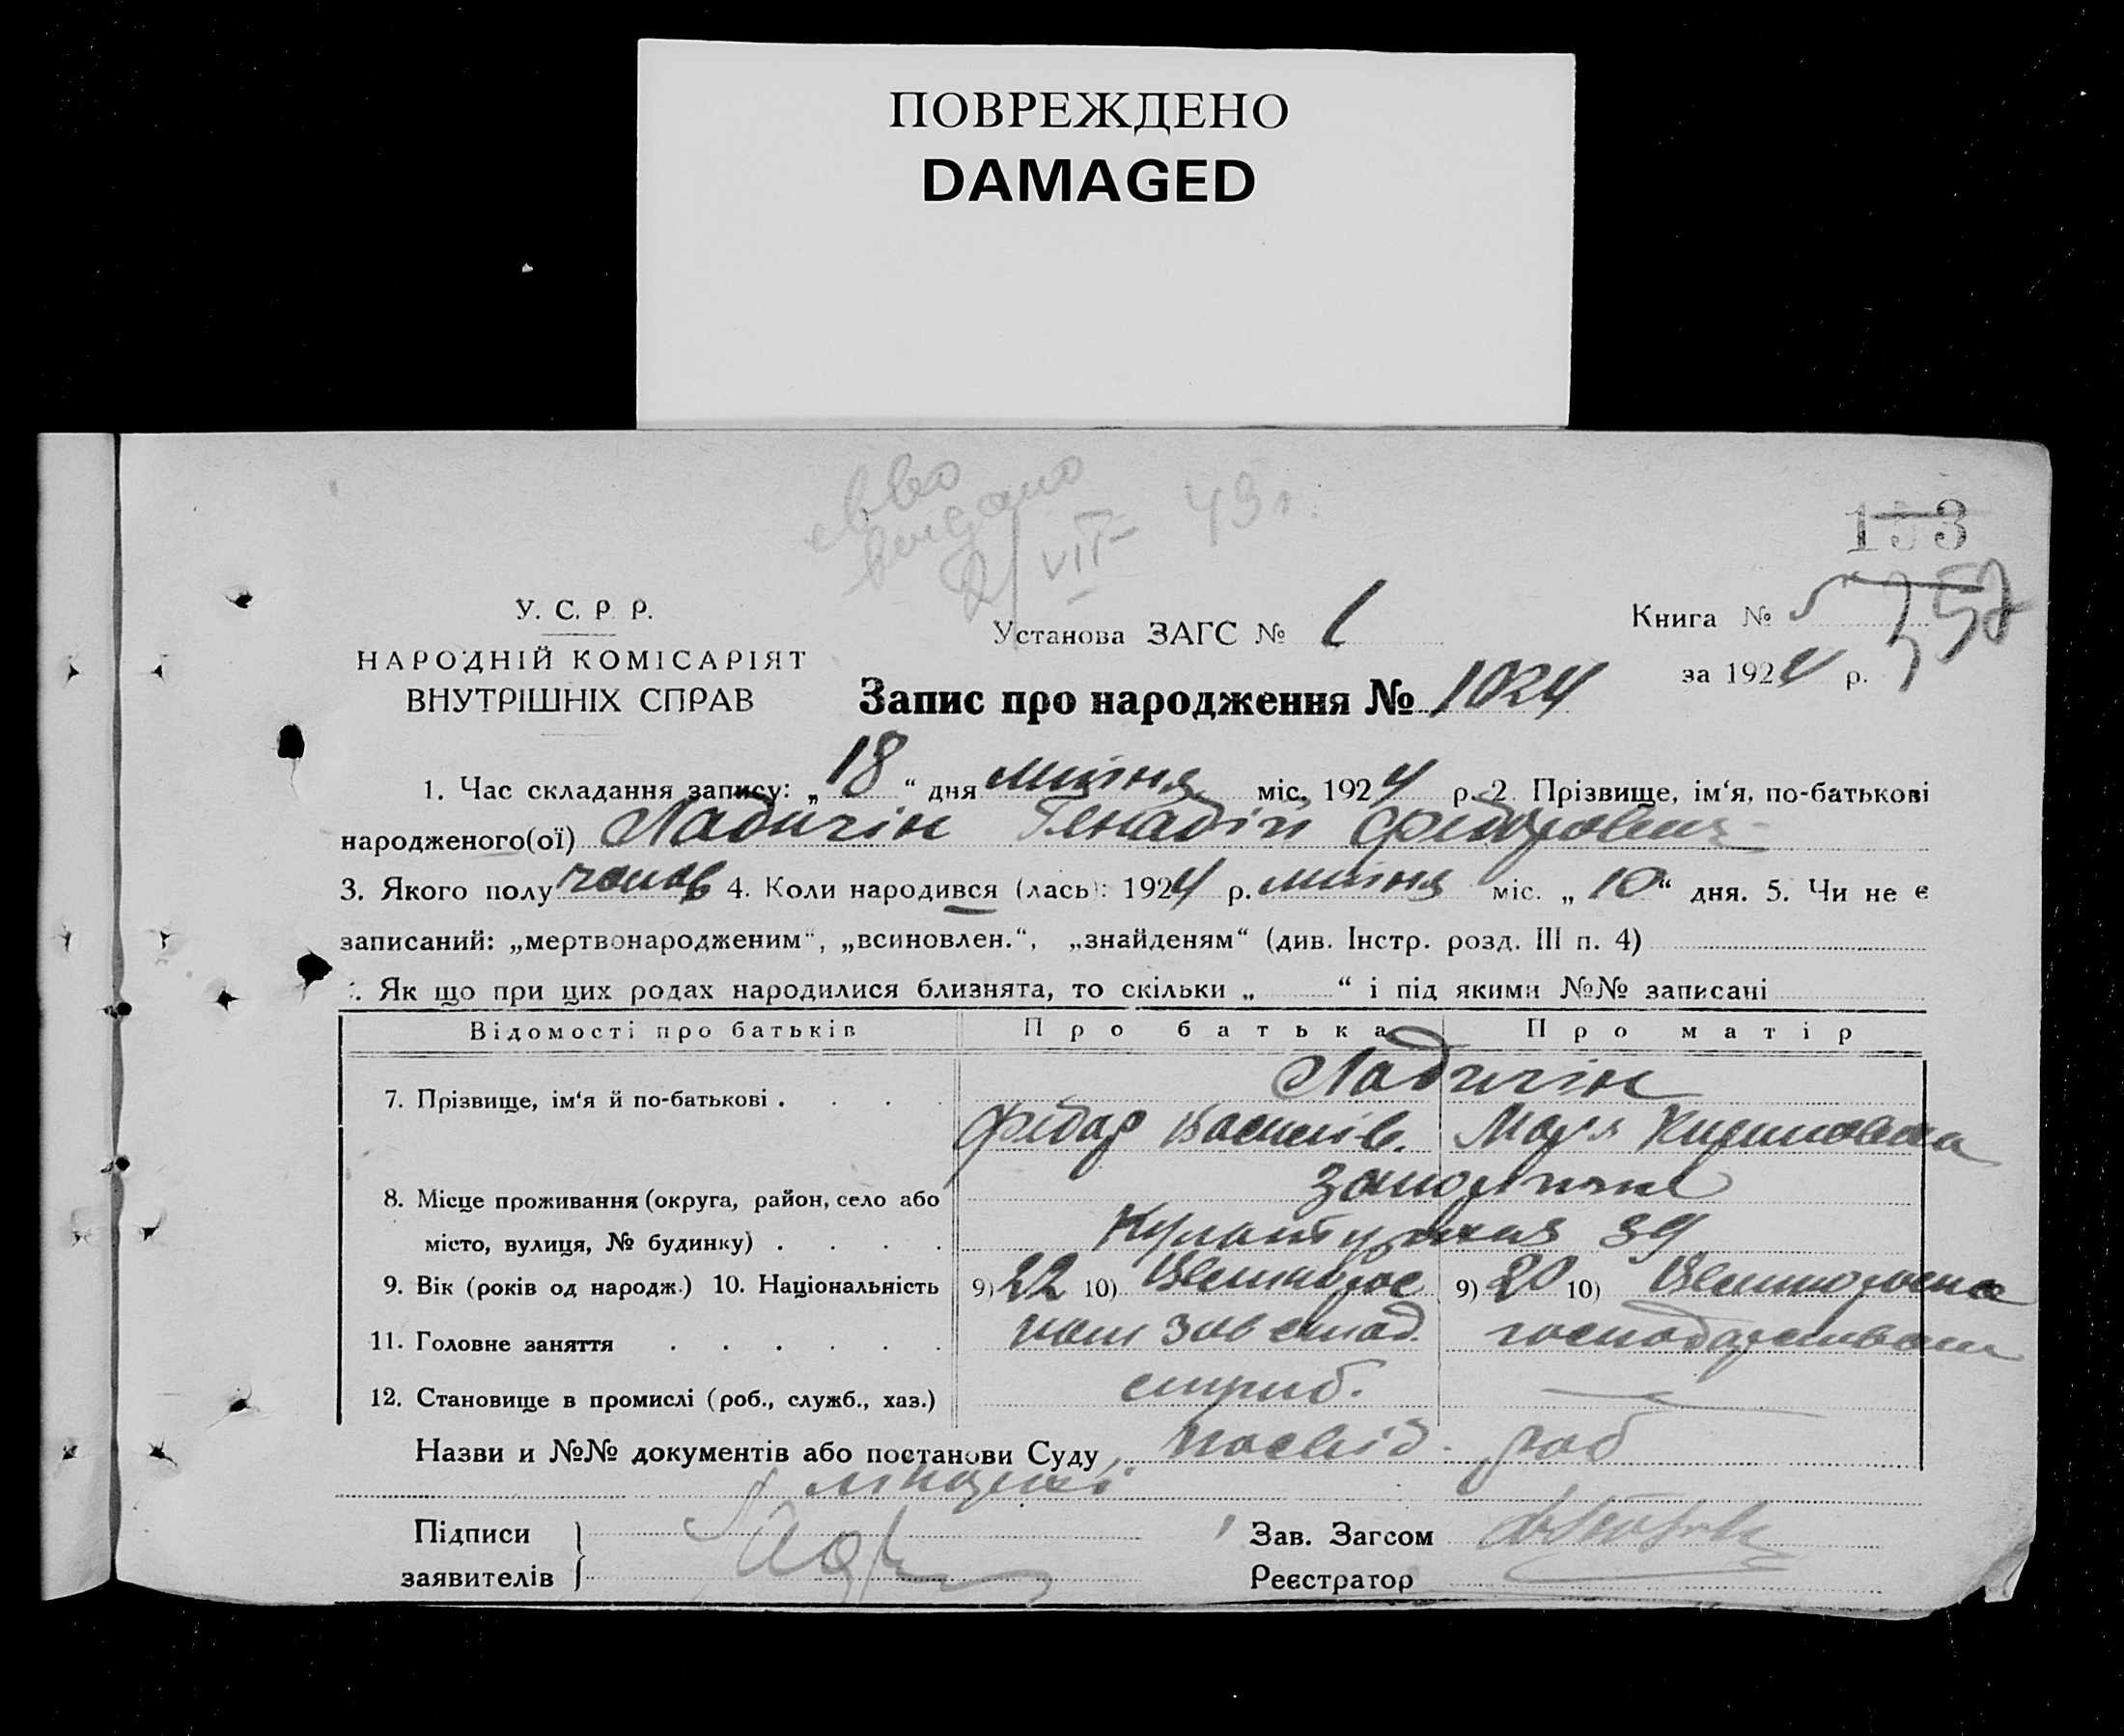 ПОВРЕЖДЕНО
DAMAGED
видано
VII 43 г.
153
352
У. С. Р. Р.
НАРОДНІЙ КОМІСАРІЯТ
ВНУТРІШНІХ СПРАВ
Установа ЗАГС № 1
Книга № 5
за 1924 р.
Запис про народження № 1024
1. Час складання запису: „18“ дня липня міс. 1924 р. 2. Прізвище, ім‘я, по-батькові
народженого(ої) Ладигін Генадій Федорович
3. Якого полу чолов 4. Коли народився (лась): 1924 р. липня міс. „10“ дня. 5. Чи не є
записаний: „мертвонародженим“, „всиновлен.“, „знайденям“ (див. Інстр. розд. III п. 4)
. Як що при цих родах народилися близнята, то скільки „ “ і під якими №№ записані
Відомості про батьків Про батька Про матір
Ладигін
7. Прізвище, ім‘я й по-батькові .
Федор Василів. Марія
8. Місце проживання (округа, район, село або
місто, вулиця, № будинку) . 39
9. Вік (років од народж.) 10. Національність 9) 22 10) Великорос 9) 20 10) Великороска
11. Головне заняття . пом зав склад. господарством
12. Становище в промислі (роб., служб., хаз.)
Назви и №№ документів або постанови Суду посвід.
Підписи
заявителів
Зав. Загсом
Реєстратор